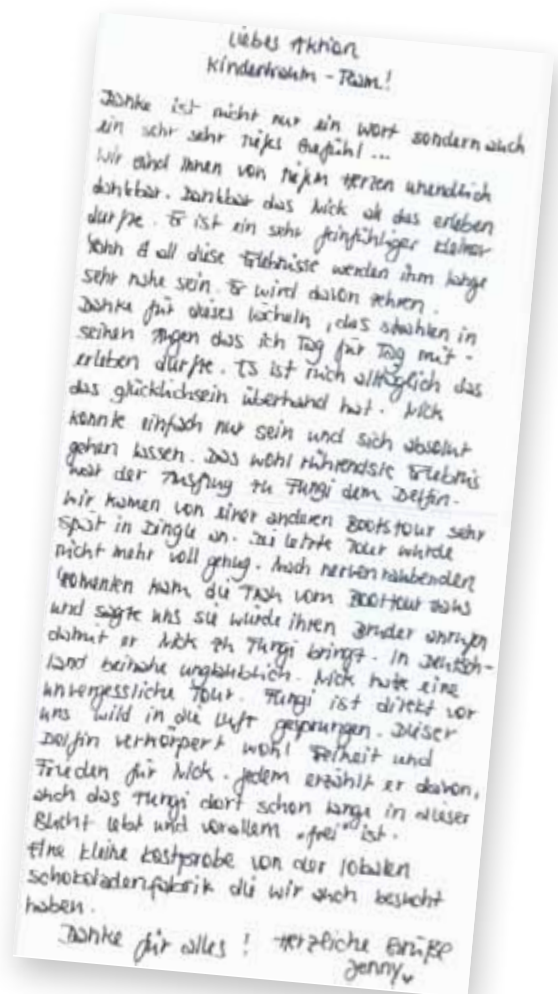 Liebes Aktion
Kindertraum - Team!
Danke ist nicht nur ein Wort sondern auch
ein sehr sehr tiefes Gefühl ...
Wir sind Ihnen von tiefem Herzen unendlich
dankbar. Dankbar das Nick all das erleben
durfte. Er ist ein sehr feinfühliger kleiner
Sohn & all diese Erlebnisse werden ihm lange
sehr nahe sein. Er wird davon zehren.
Danke für dieses lächeln, das strahlen in
seinen Augen das ich Tag für Tag mit-
erleben durfte. Es ist nich alltäglich das
das glücklichsein überhand hat. Nick
konnte einfach nur sein und sich absolut
gehen lassen. Das wohl rührendste Erlebnis
war der Ausflug zu Fungi dem Delfin.
Wir kamen von einer anderen Bootstour sehr
spät in Dingle an. Die letzte Tour wurde
nicht mehr voll genug. Nach nervenraubenden
Momenten kam die Frau vom Boottour Haus
und sagte uns sie würde ihren Bruder anrufen
damit er Nick zu Fungi bringt. In Deutsch-
land beinahe unglaublich. Nick hatte eine
unvergessliche Tour. Fungi ist direkt vor
uns wild in die Luft gesprungen. Dieser
Delfin verkörpert wohl Freiheit und
Frieden für Nick. Jedem erzählt er davon,
auch das Fungi dort schon lange in dieser
Bucht lebt und vorallem „frei" ist.
Eine kleine Kostprobe von der lokalen
Schokoladenfabrik die wir auch besucht
haben.
Danke für alles! Herzliche Grüße
Jenny